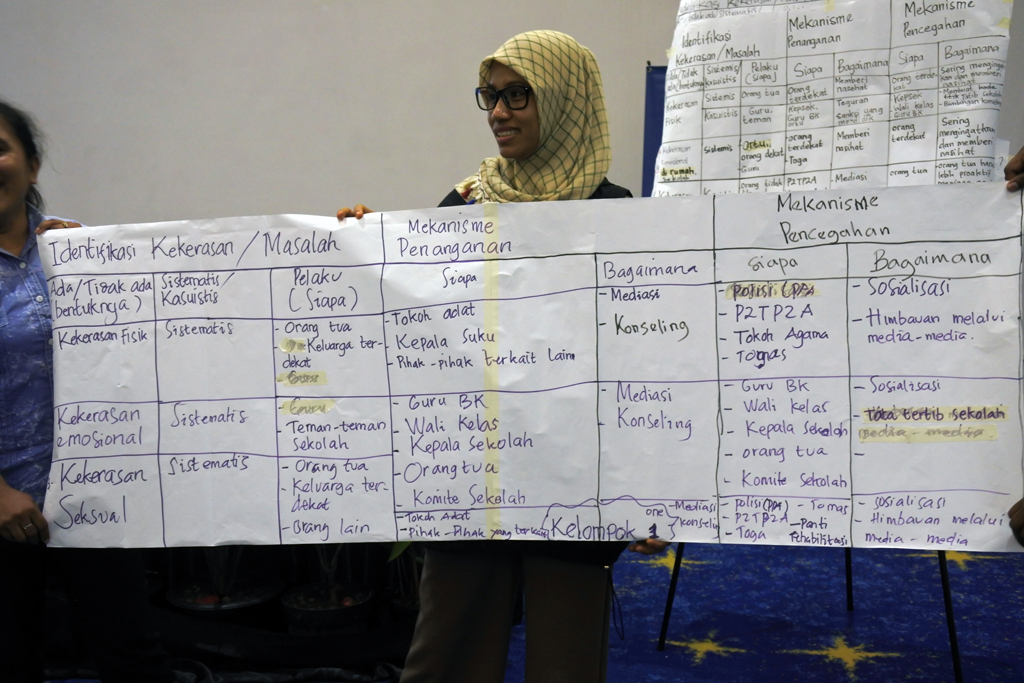 Identifikasi
Kekerasan / Masalah
Mekanisme
Penanganan
Mekanisme
Pencegahan
Sistemis
Kasuistis
Pelaku
(Siapa)
Siapa
Bagaimana
Siapa
Bagaimana
Kekerasan
Fisik
Sistemis
Kasuistis
Orang tua
Guru,
teman
Orang
terdekat
Kepsek
Guru BK
Memberi
nasehat
Teguran
Kepsek
Wali kelas
Guru BK
Sistemis
Ortu,
orang dekat
Guru
-orang
terdekat
-Toga
Memberi
nasihat
orang
terdekat
Sering
mengingatkan
dan memberi
nasihat
di rumah,
orang tidak
P2TP2A
-Mediasi
orang tua
orang tua harus
lebih proaktif
Identifikasi Kekerasan / Masalah
Mekanisme
Penanganan
Mekanisme
Pencegahan
Ada/Tidak ada
bentuknya)
Sistematis/
Kasuistis
Pelaku
(Siapa)
Siapa
Bagaimana
Siapa
Bagaimana
Kekerasan Fisik
Sistematis
- Orang tua
- Keluarga ter-
dekat
- Guru
- Tokoh adat
- Kepala suku
- Pihak - pihak terkait lain
- Mediasi
- Konseling
- polisi (PPA)
- P2TP2A
- Tokoh Agama
- Togas
- Sosialisasi
- Himbauan melalui
media - media.
Kekerasan
emosional
Sistematis
- Guru
- Teman-teman
sekolah
- Guru BK
- Wali Kelas
- Kepala Sekolah
- Orang tua
- Komite Sekolah
Mediasi
Konseling
- Guru BK
- Wali kelas
- Kepala sekolah
- orang tua
- Komite Sekolah
- Sosialisasi
- Tata tertib sekolah
media - media
-
Kekerasan
Seksual
Sistematis
- Orang tua
- Keluarga ter-
dekat
- Orang lain
- Tokoh Adat
- Pihak - Pihak yang terkait
Kelompok one 1
- Mediasi
konseling
- polisi (PPA)
- P2TP2A
- Toga
- Tomas
- Panti
Rehabilitasi
- sosialisasi
- Himbauan melalui
media - media